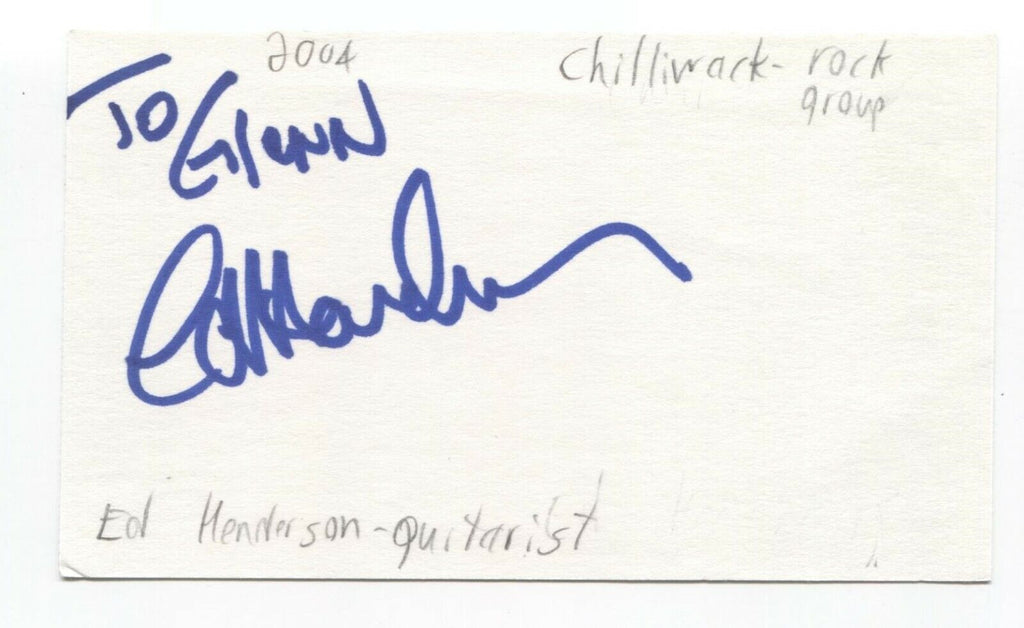 2004
Chilliwack- rock
group
To Glenn
Ed Henderson
Ed Henderson-guitarist